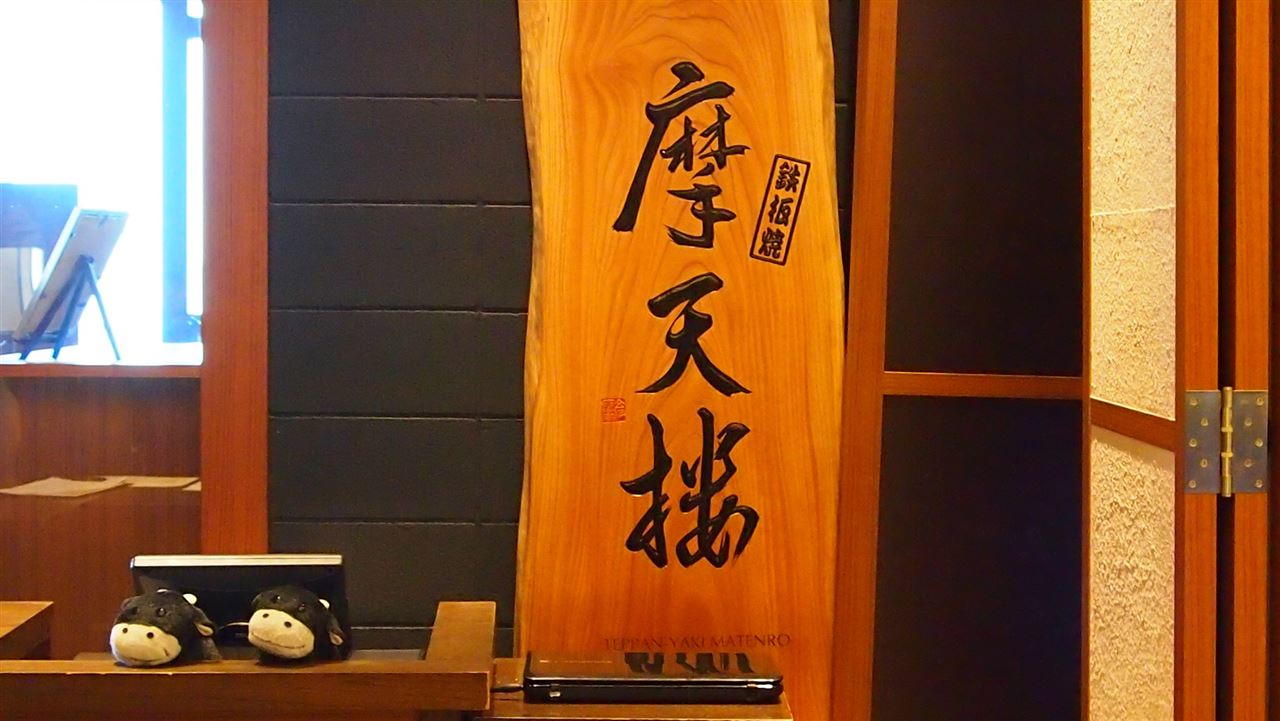 摩天楼
鉄板焼
TEPPAN-YAKI MATENRO